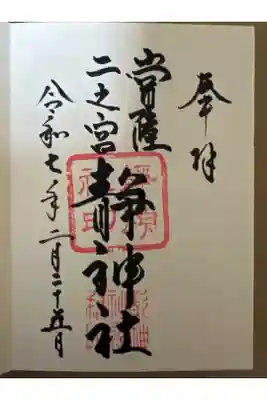 奉拝
常陸
二之宮
靜神社
令和七年二月二十五日